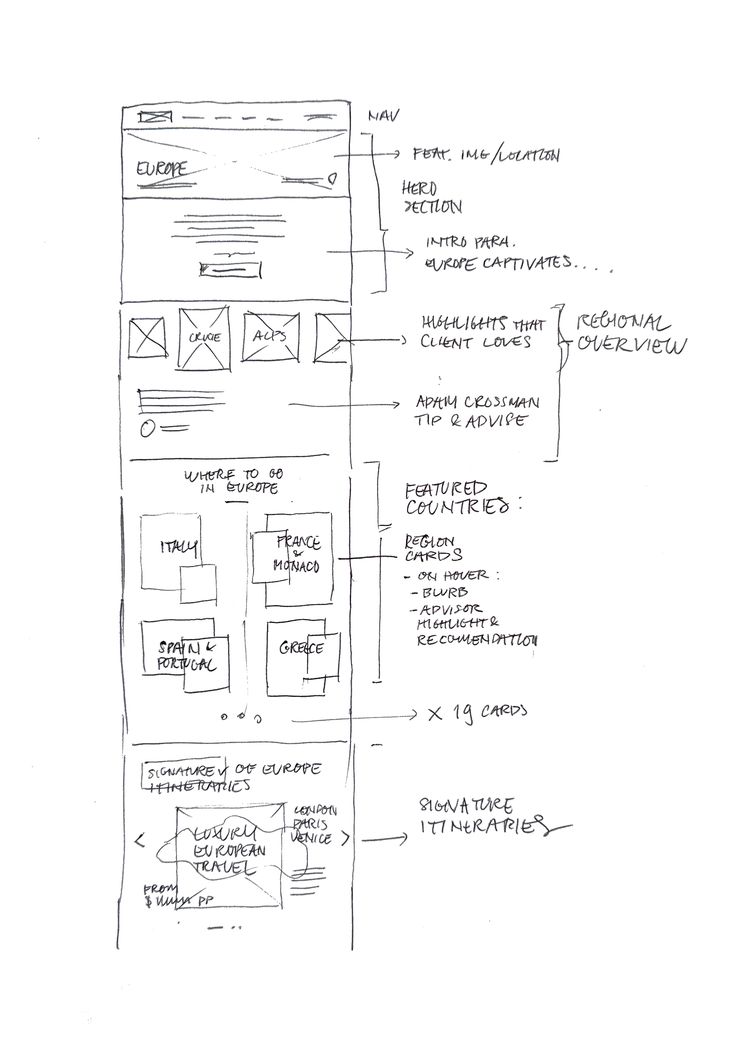 NAV
EUROPE
FEAT. IMG/LOCATION
HERO
SECTION
INTRO PARA.
EUROPE CAPTIVATES....
CRUISE
ALPS
HIGHLIGHTS THAT
CLIENT LOVES
REGIONAL
OVERVIEW
ADAM CROSSMAN
TIP & ADVISE
WHERE TO GO
IN EUROPE
FEATURED
COUNTRIES:
ITALY
FRANCE
&
MONACO
REGION
CARDS
- ON HOVER:
- BLURB
- ADVISOR
HIGHLIGHT &
RECOMENDATION
SPAIN &
PORTUGAL
GREECE
X 19 CARDS
SIGNATURE OF EUROPE
ITINERARIES
LUXURY
EUROPEAN
TRAVEL
LONDON
PARIS
VENICE
SIGNATURE
ITINERARIES
FROM
$ PP